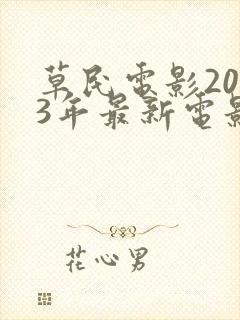 草民電影20
3年最新電影
花心男